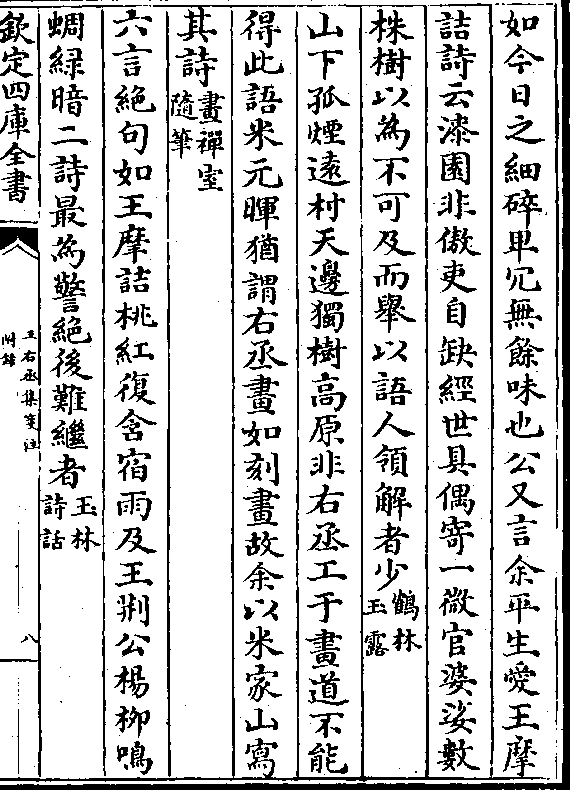 如今日之細碎卑冗無餘味也公又言余平生愛王摩
詰詩云漆園非傲吏自缺經世具偶寄一微官婆娑數
株樹以為不可及而舉以語人領解者少鶴林玉露
山下孤煙遠村天邊獨樹高原非右丞工于畫道不能
得此語米元暉猶謂右丞畫如刻畫故余以米家山寫
其詩畫禪室隨筆
六言絶句如王摩詰桃紅復含宿雨及王荆公楊栁鳴
蜩緑暗二詩最為警絶後難繼者玉林詩話
欽定四庫全書
王右丞集箋注
附録
八